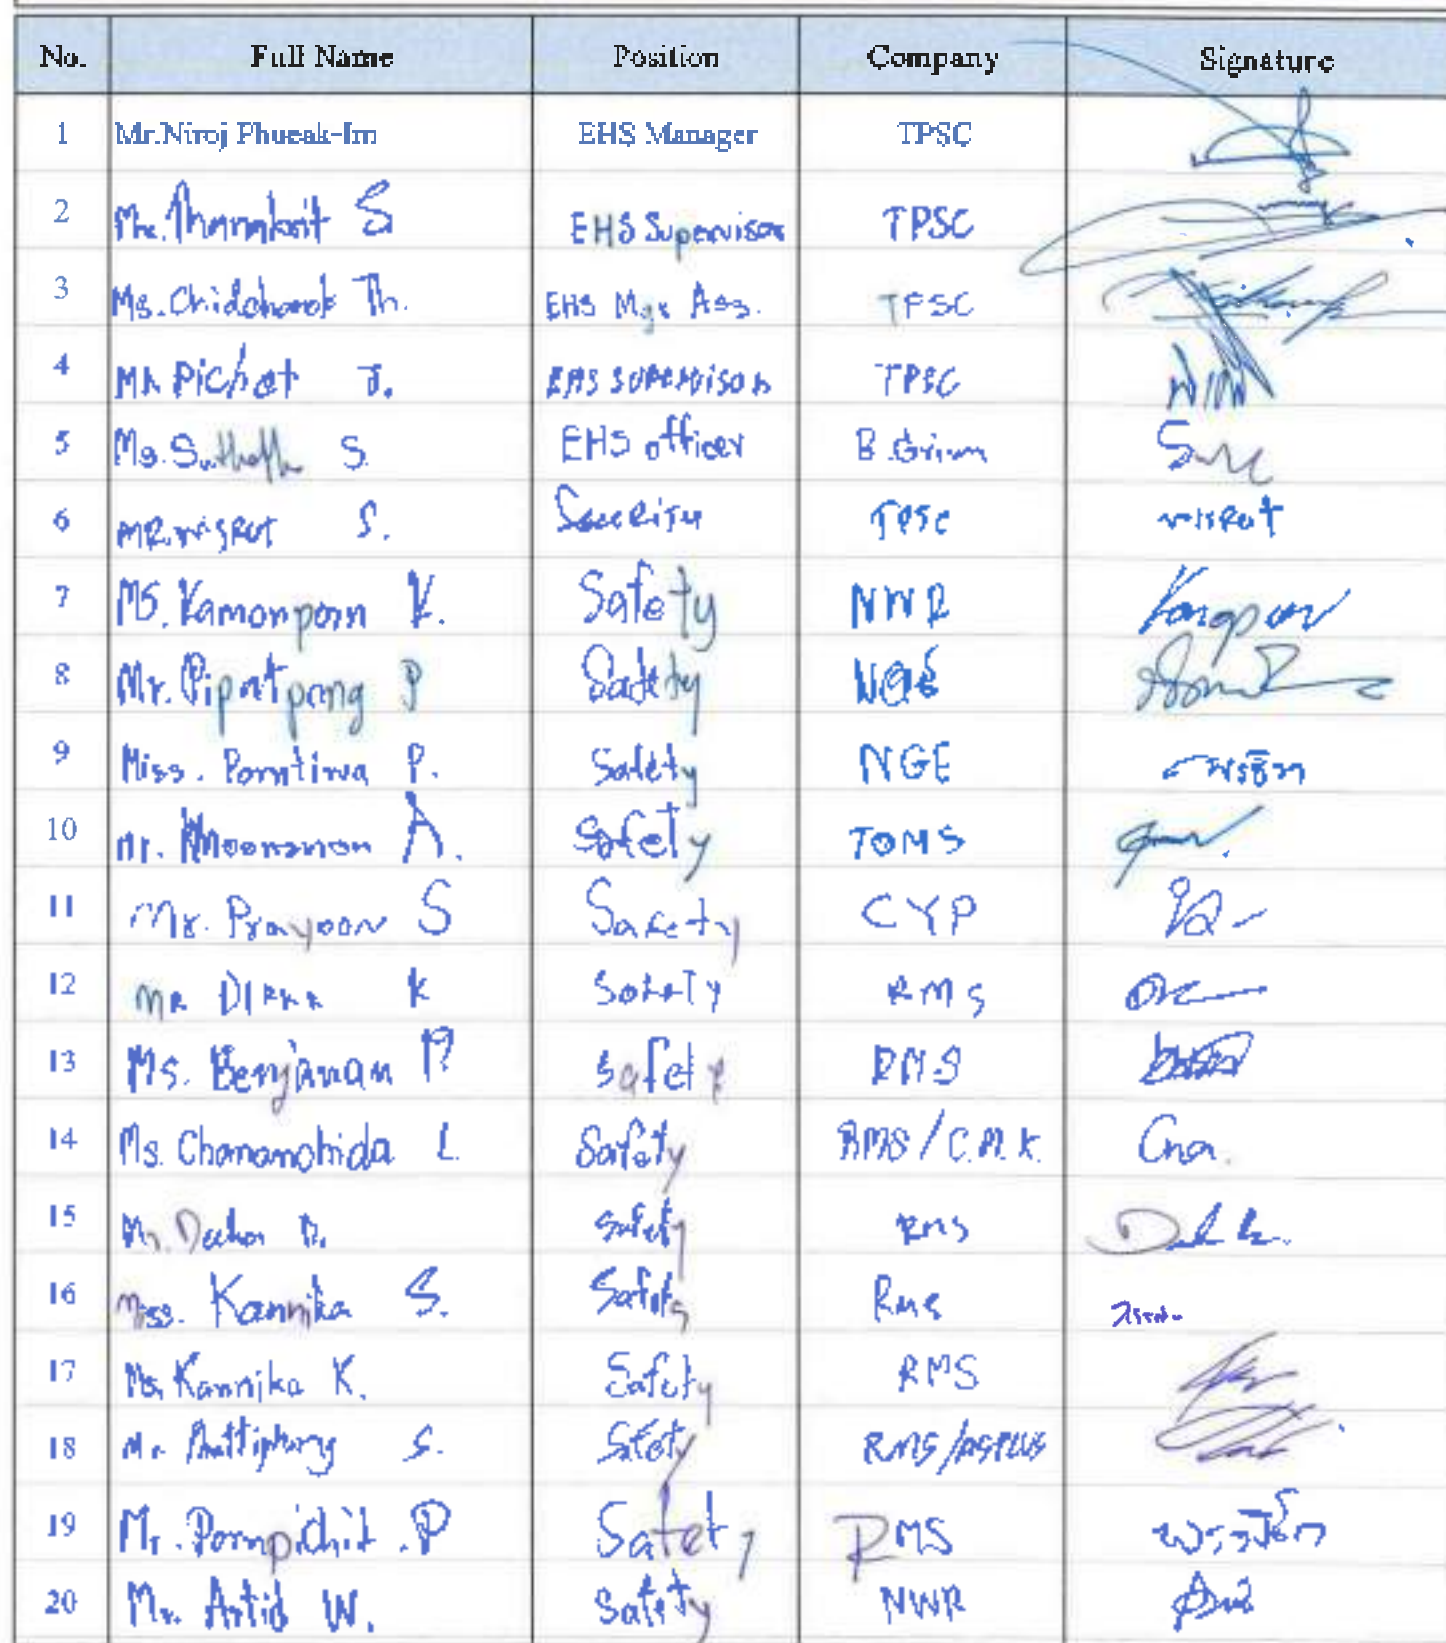 No. Full Name Position Company Signature
1 Mr.Niroj Phueak-Im EHS Manager TPSC
2 Mr. Thanakrit S EHS Supervisor TPSC
3 Ms. Chidchanok Th. EHS Mgr Ass. TPSC
4 MR. Pichet J. EHS SUPERVISOR TPSC
5 Ms. S EHS officer B.Grimm
6 MR. S. TPSC
7 MS. Kamonporn K. Safety NWR
8 Mr. Pipatpong P Safety NGE
9 Miss. Porntiwa P. Safety NGE พรธิวา
10 Mr. A. Safety TOMS
11 Mr. Prayoon S Safety CYP
12 MR K Safety RMS
13 Ms. Benjawan P. Safety RMS
14 Ms. Chananchida L Safety RMS / C.M.K. Cha.
15 Mr. Decha D. Safety RMS
16 Miss. Kannika S. Safety RMS
17 Ms. Kannika K. Safety RMS
18 Mr. Nuttiphong S. Safety RMS/ASPLUS
19 Mr. Pornpichit .P Safety RMS
20 Mr. Artid W. Safety NWR